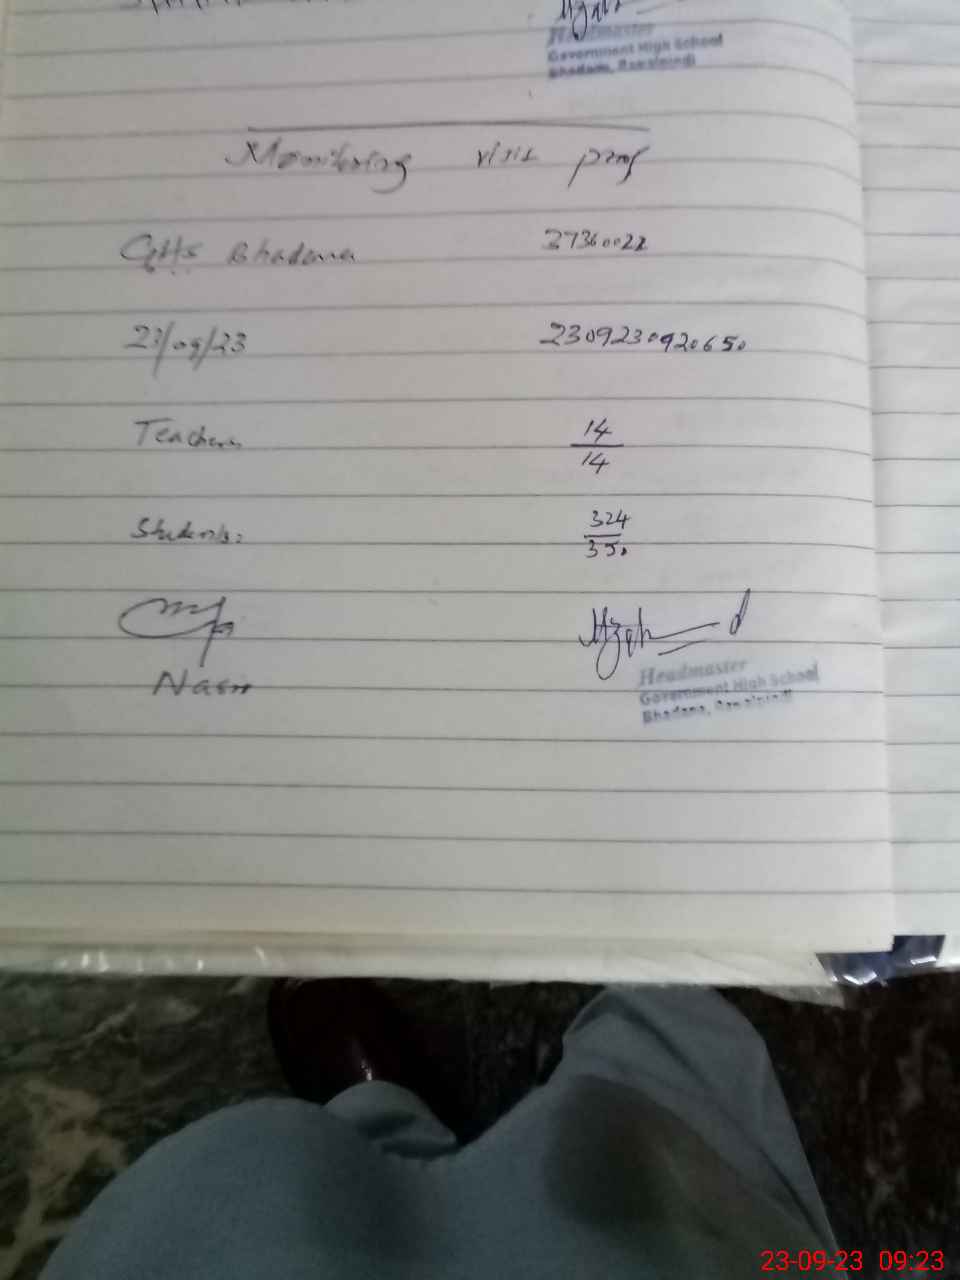 Headmaster
Government High School
Bhadana, Rawalpindi
Monitoring visit prof
GHS Bhadana 37360022
23/09/23 2309230920650
Teachers 14
14
Students: 324
350
Nasir
Headmaster
Government High School
Bhadana, Rawalpindi
23-09-23 09:23